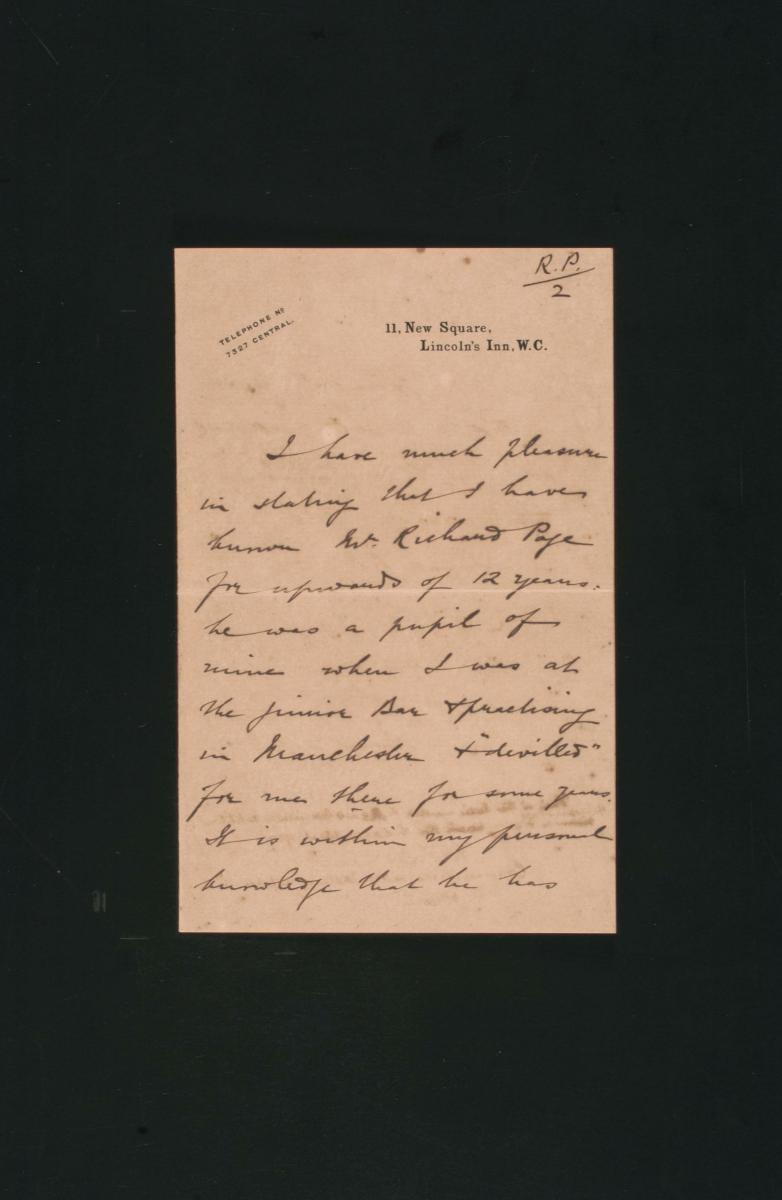 R.P.
2
TELEPHONE Nº
7327 CENTRAL.
11, New Square,
Lincoln's Inn, W.C.
I have much pleasure
in stating that I have
known Mr. Richard Page
for upwards of 12 years.
he was a pupil of
mine when I was at
the junior Bar & practising
in Manchester & "devilled"
for me there for some years.
It is within my personal
knowledge that he has